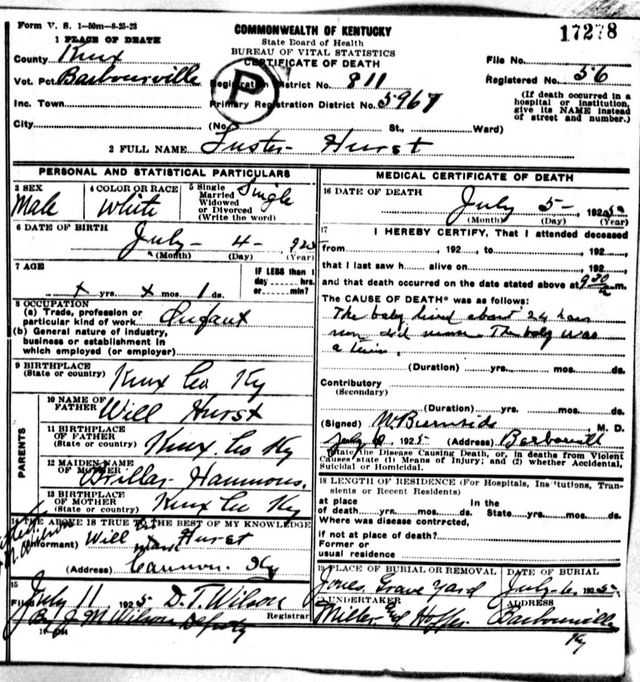 Form V. S. 1—50m—8-25-23
COMMONWEALTH OF KENTUCKY
State Board of Health
BUREAU OF VITAL STATISTICS
CERTIFICATE OF DEATH
17278
1 PLACE OF DEATH
County Knux
Vot. Pct. Barbourville
Inc. Town
City
Registration District No. 811
Primary Registration District No. 5967
P
(No. St., Ward)
File No.
Registered No. 56
(If death occurred in a hospital or institution, give its NAME instead of street and number.)
2 FULL NAME Luster Hurst
PERSONAL AND STATISTICAL PARTICULARS
3 SEX Male
4 COLOR OR RACE White
5 Single Married Widowed or Divorced (Write the word) Single
6 DATE OF BIRTH July 4
(Month) (Day) (Year)
7 AGE x yrs. x mos. 1 ds.
IF LESS than 1 day hrs. or min?
8 OCCUPATION
(a) Trade, profession or particular kind of work Infant
(b) General nature of industry, business or establishment in which employed (or employer)
9 BIRTHPLACE (State or country) Knux Co Ky
PARENTS
10 NAME OF FATHER Will Hurst
11 BIRTHPLACE OF FATHER (State or country) Knux Co Ky
12 MAIDEN NAME OF MOTHER Hammons
13 BIRTHPLACE OF MOTHER (State or country) Knux Co Ky
14 THE ABOVE IS TRUE TO THE BEST OF MY KNOWLEDGE
(Informant) Will Hurst
(Address) Cannon Ky
15 Filed July 11 1925 D. T. Wilson Registrar
By J M Wilson Deputy
MEDICAL CERTIFICATE OF DEATH
16 DATE OF DEATH July 5 1925
(Month) (Day) (Year)
17 I HEREBY CERTIFY, That I attended deceased
from , 192 , to , 192
that I last saw h alive on , 192
and that death occurred on the date stated above at 9:30 m
The CAUSE OF DEATH* was as follows:
The baby lived about 24 hours
The baby was
a twin.
(Duration) yrs. mos. ds.
Contributory
(Secondary)
(Duration) yrs. mos. ds.
(Signed) W Burnside M. D.
July 1925 (Address) Barbourville
*State the Disease Causing Death, or, in deaths from Violent Causes state (1) Means of Injury; and (2) whether Accidental, Suicidal or Homicidal.
18 LENGTH OF RESIDENCE (For Hospitals, Institutions, Transients or Recent Residents)
at place of death yrs. mos. ds. In the State yrs. mos. ds.
Where was disease contracted,
if not at place of death?
Former or usual residence
19 PLACE OF BURIAL OR REMOVAL Jones Grave Yard
DATE OF BURIAL July 6 1925
UNDERTAKER Miller
ADDRESS Barbourville
Ky